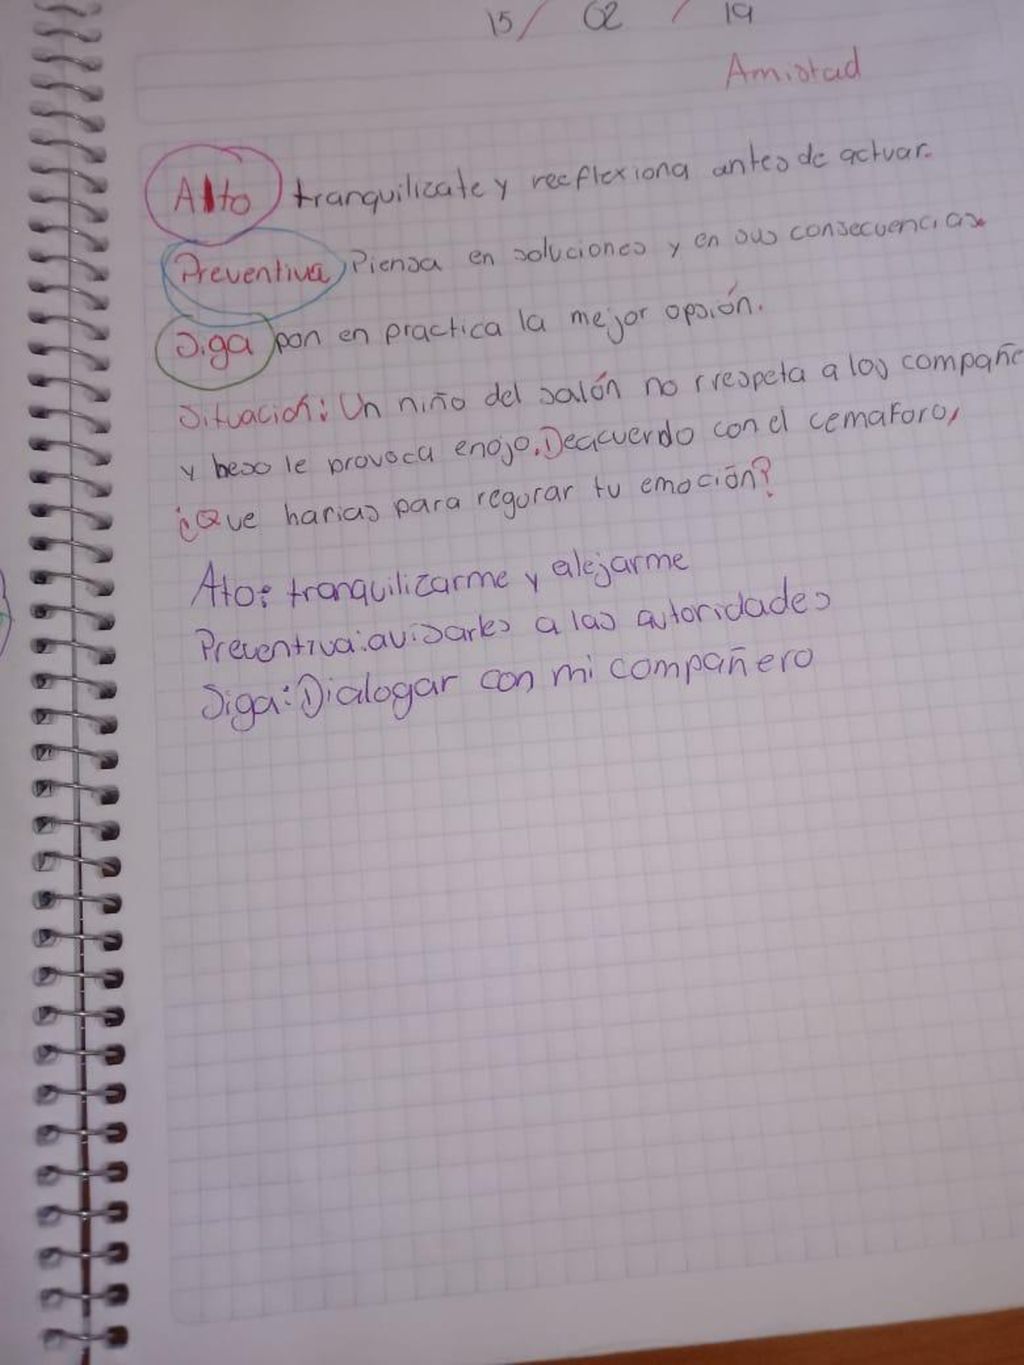 15/ 02 / 19
Amistad
Alto tranquilizate y recflexiona antes de actuar.
Preventiva Piensa en soluciones y en sus consecuencias.
Siga pon en practica la mejor opsión.
Situación: Un niño del salón no rrespeta a los compañe
y beso le provoca enojo. Deacuerdo con el cemaforo,
¿Que harias para regurar tu emoción?
Ato: tranquilizarme y alejarme
Preventiva: avisarles a las autoridades
Siga: Dialogar con mi compañero